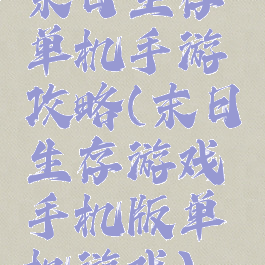 末日生存
单机手游
攻略(末日
生存游戏
手机版单
机游戏)